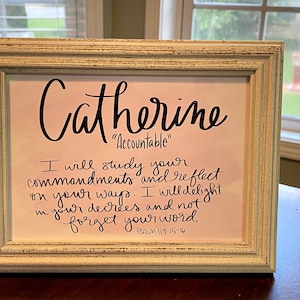 Catherine
"Accountable"
I will study your
commandments and reflect
on your ways. I will delight
in your decrees and not
forget your word.
PSALM 119:15-16